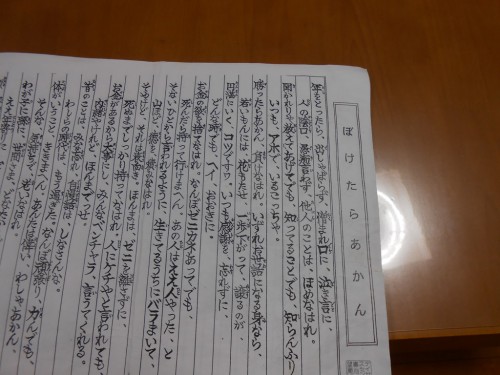 ぼけたらあかん
年をとったら、出しゃばらず、憎まれ口に、泣き言に、
人の陰口、愚痴言わず、他人のことは、ほめなはれ。
聞かれりゃ教えてあげてでも、知ってることでも、知らんふり
いつも、アホで、いるこっちゃ。
勝ったらあかん、負けなはれ、いずれお世話になる身なら、
若いもんには、花もたせ、一歩下がって、譲るのが、
円満にいく、コツですわ。いつも感謝を、忘れずに、
どんな時でも、ヘイ、おおきに。
お金の欲を、捨てなはれ。なんぼゼニカネあってでも、
死んだら持って行けまへん。あの人はええ人やった、と
そないに人から言われるように、生きてるうちにバラまいて、
山ほど、徳を、積みなはれ。
そやけど、それは表向き。ほんまは、ゼニを離さずに、
死ぬまでしっかり、持ってなはれ。人にケチやと言われても、
お金があるから大事にし、みんなベンチャラ、言うてくれる。
内緒やけれど、ほんまでっせ。
昔のことは、みな忘れ、自慢話は、しなさんな、
わしらの時代は、もう過ぎた。なんぼ頑張り、力んでも、
体がいうこと、ききまへん。あんたはえらい、わしゃあかん、
そんな気持ちで、おりなはれ。
わが子に孫に、世間さまに、